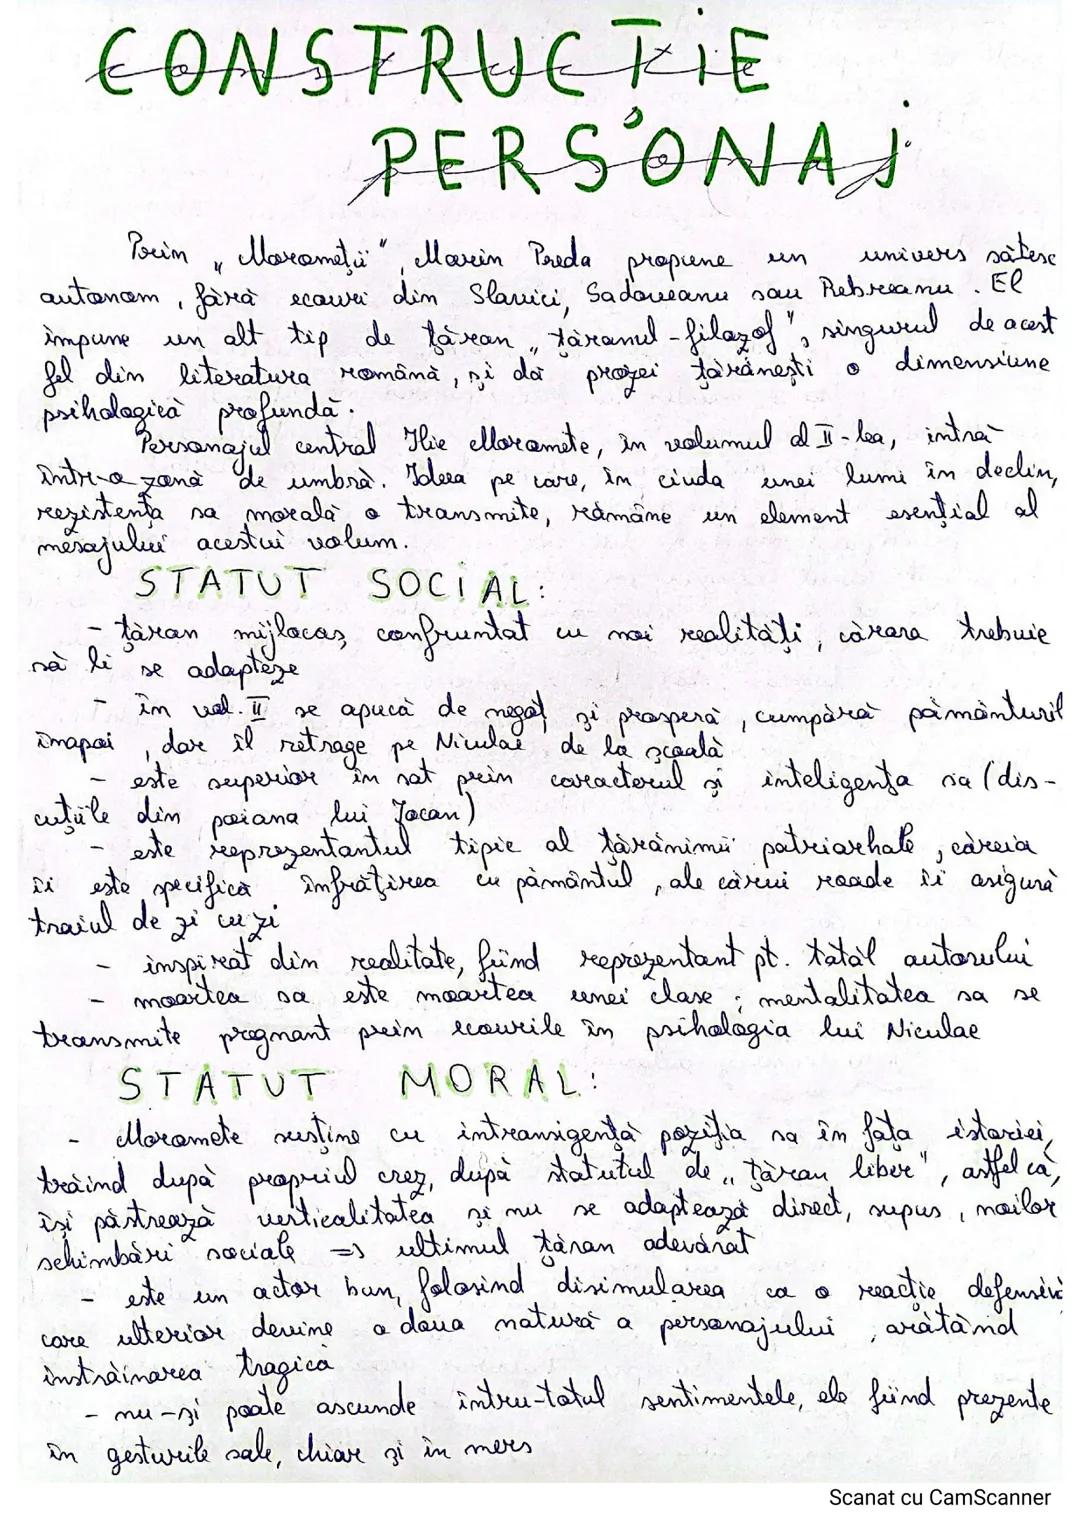 CONSTRUCȚIE
PERSONAJ
Prin „Moromeții", Marin Preda propune un univers sătesc
autonom, fără ecouri din Slavici, Sadoveanu sau Rebreanu. El
impune un alt tip de țăran „țăranul-filozof", singurul de acest
fel din literatura română, și dă prozei țărănești o dimensiune
psihologică profundă.
Personajul central Ilie Moromete, în volumul al II-lea, intră
într-o zonă de umbră. Ideea pe care, în ciuda unei lumi în declin,
rezistența sa morală o transmite, rămâne un element esențial al
mesajului acestui volum.
STATUT SOCIAL:
- țăran mijlocaș, confruntat cu noi realități, cărora trebuie
să li se adapteze
- în vol. II se apucă de negoț și prosperă, cumpără pământuril
înapoi, dar îl retrage pe Niculae de la școală
- este superior în sat prin caracterul și inteligența sa (dis-
cuțiile din poiana lui Iocan)
- este reprezentantul tipic al țărănimii patriarhale, căreia
îi este specifică înfrățirea cu pământul, ale cărui roade îi asigură
traiul de zi cu zi
- inspirat din realitate, fiind reprezentant pt. tatăl autorului
- moartea sa este moartea unei clase; mentalitatea sa se
transmite pregnant prin ecourile în psihologia lui Niculae
STATUT MORAL:
- Moromete susține cu intransigență poziția sa în fața istoriei,
trăind după propriul crez, după statutul de „țăran liber", astfel că,
își păstrează verticalitatea și nu se adaptează direct, supus, noilor
schimbări sociale => ultimul țăran adevărat
- este un actor bun, folosind disimularea ca o reacție defensivă
care ulterior devine a doua natură a personajului, arătând
înstrăinarea tragică
- nu-și poate ascunde întru-totul sentimentele, ele fiind prezente
în gesturile sale, chiar și în mers
Scanat cu CamScanner